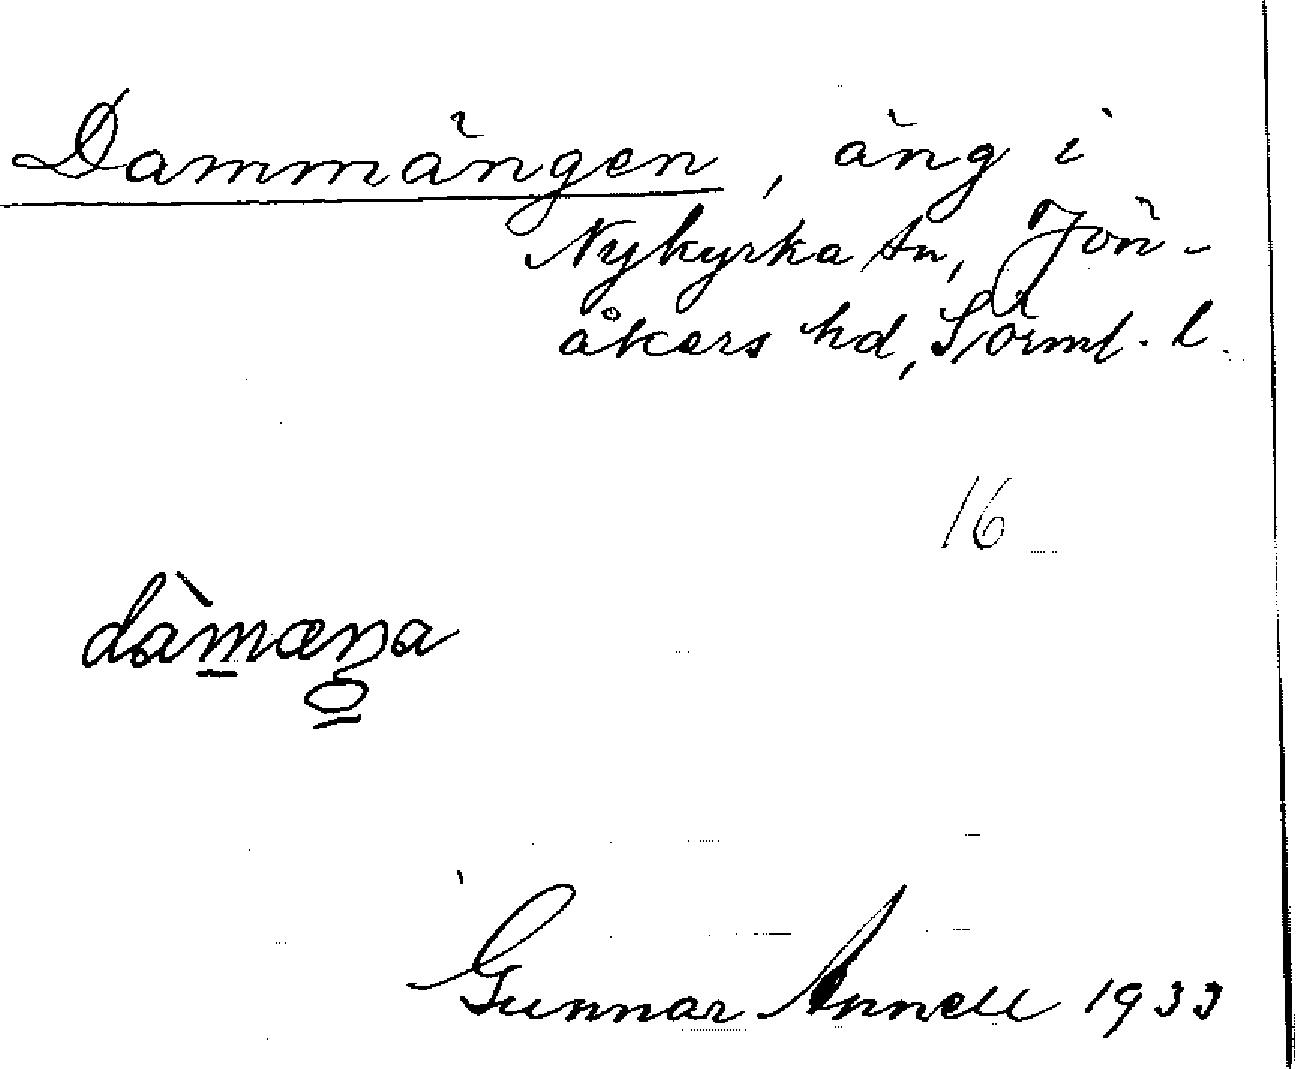 Dammängen, äng i
Nykyrka sn, Jön-
åkers hd, Sörml. l.
16
dàmæŋa
Gunnar Annell 1933